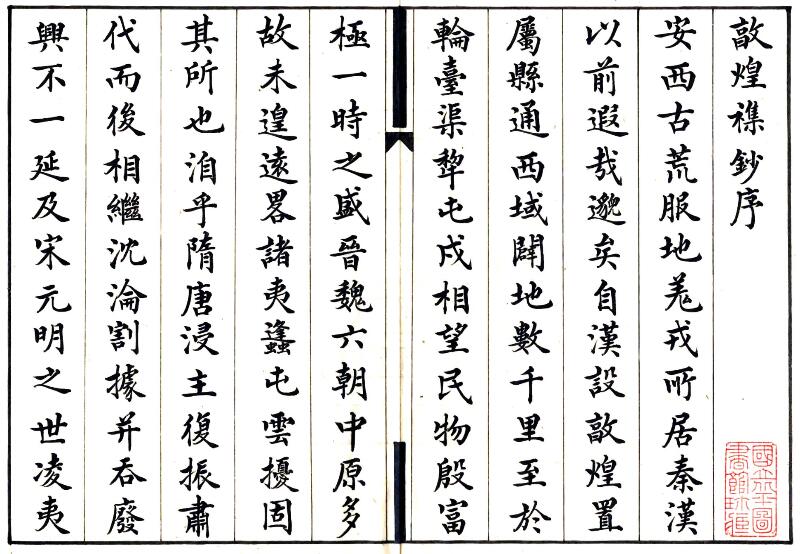 敦煌襍鈔序
安西古荒服地羌戎所居秦漢
以前遐哉邈矣自漢設敦煌置
屬縣通西域闢地數千里至於
輪臺渠犂屯戍相望民物殷富
極一時之盛晉魏六朝中原多
故未遑遠畧諸夷蠭屯雲擾固
其所也洎乎隋唐浸主復振肅
代而後相繼沈淪割據并吞廢
興不一延及宋元明之世凌夷